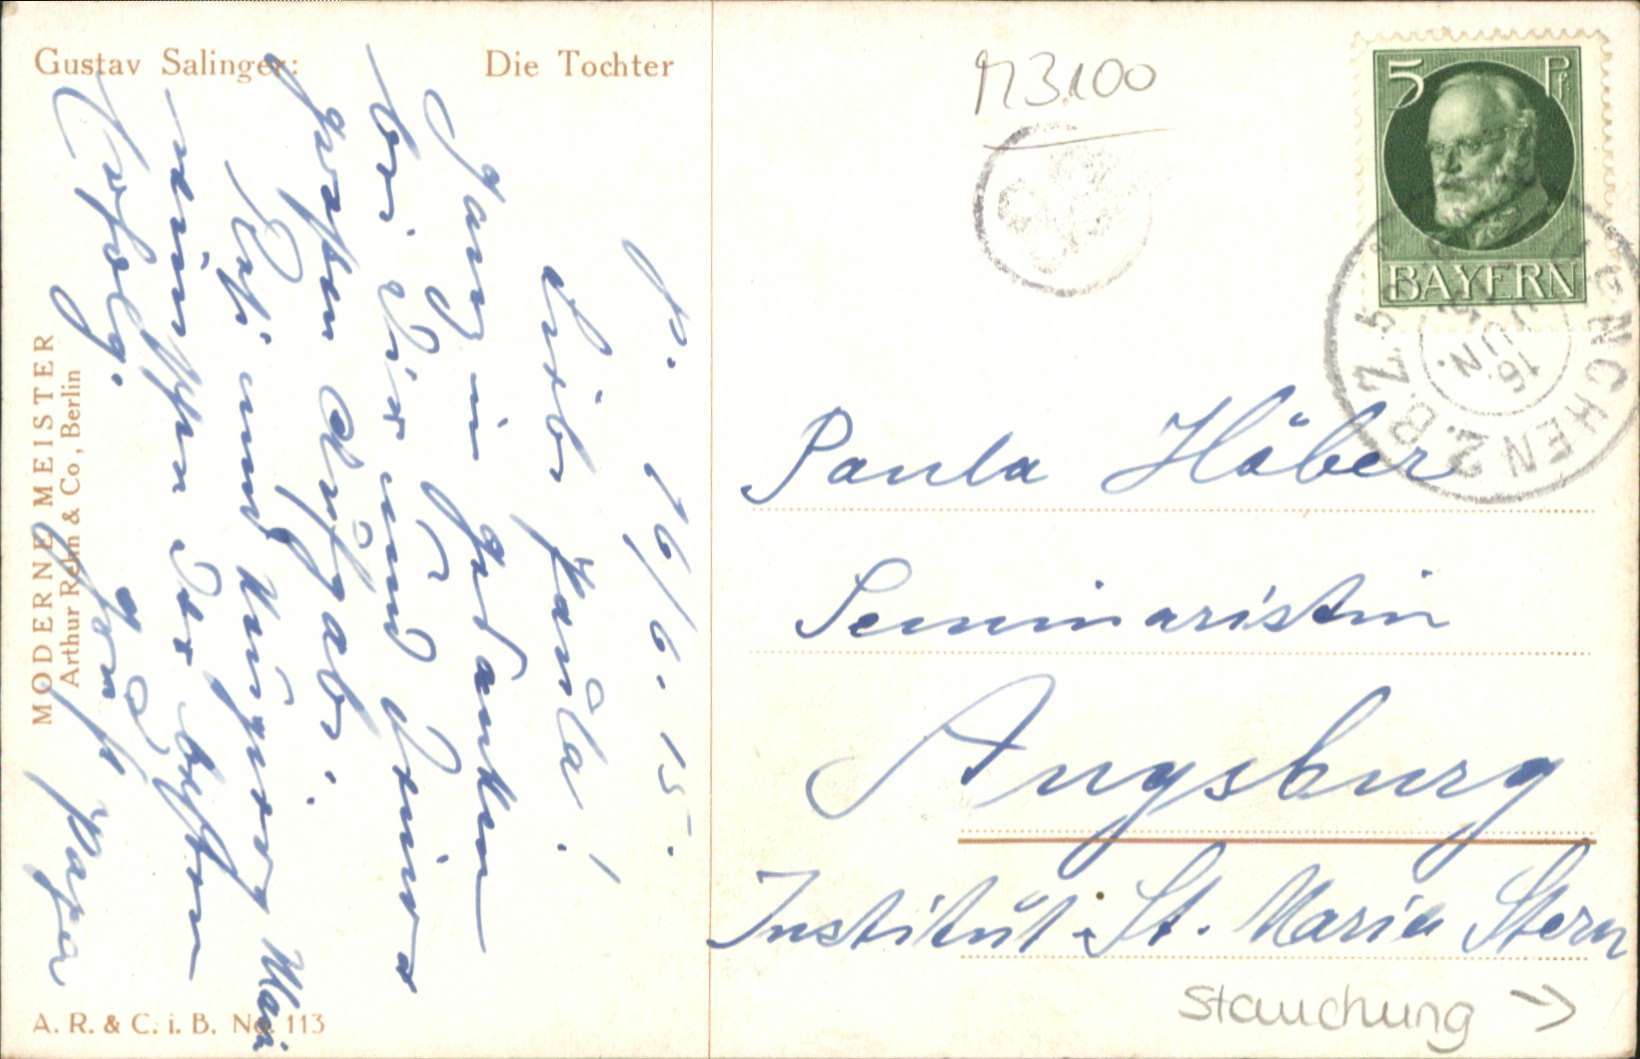 Gustav Salinger: Die Tochter
MODERNE MEISTER
Arthur Rehn & Co, Berlin
A. R. & C. i. B. No. 113
P. 16/6. 15.
Liebe Paula!
Ganz in Gedanken
bei Dir und Deiner
großen Aufgabe.
und
wünschen Dir besten
Erfolg.
Papa
M3.100
5 Pf
BAYERN
MÜNCHEN 2. B.Z.
16. JUN.
Paula Höber
Seminaristin
Augsburg
Institut St. Maria Stern
Stauchung →